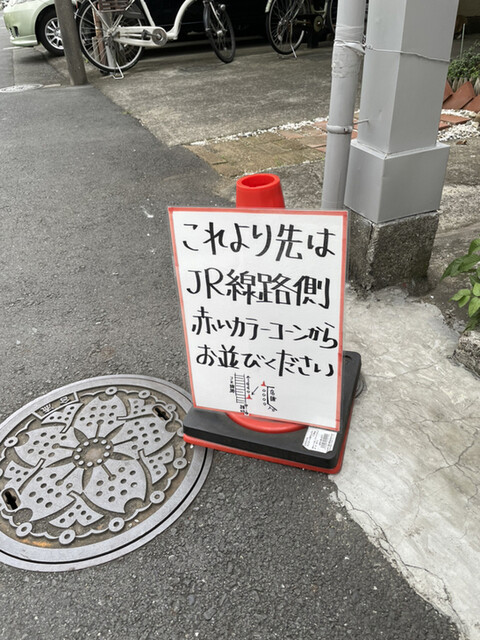 これより先は
JR線路側
赤いカラーコーンから
お並びください